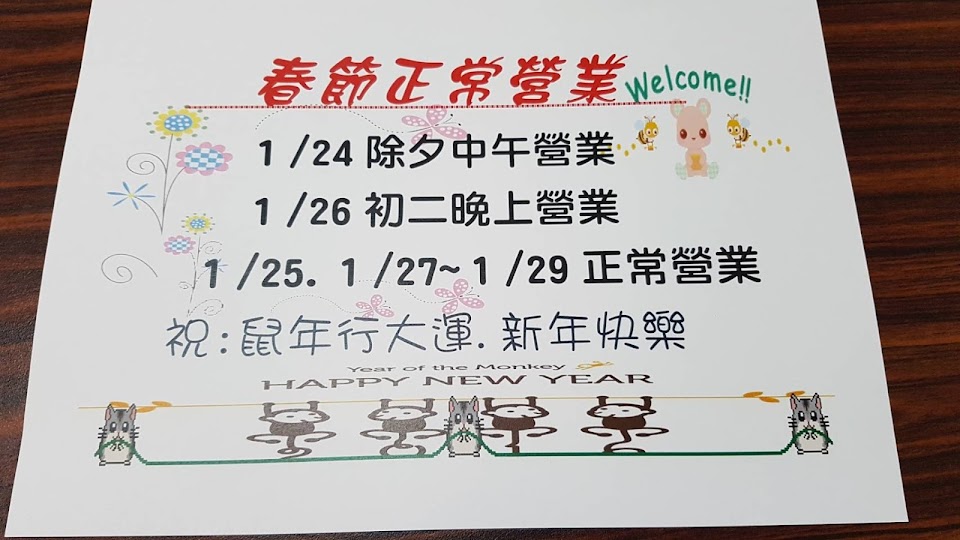 春節正常營業 Welcome!!
1/24 除夕中午營業
1/26 初二晚上營業
1/25. 1/27~1/29 正常營業
祝:鼠年行大運.新年快樂
Year of the Monkey
HAPPY NEW YEAR